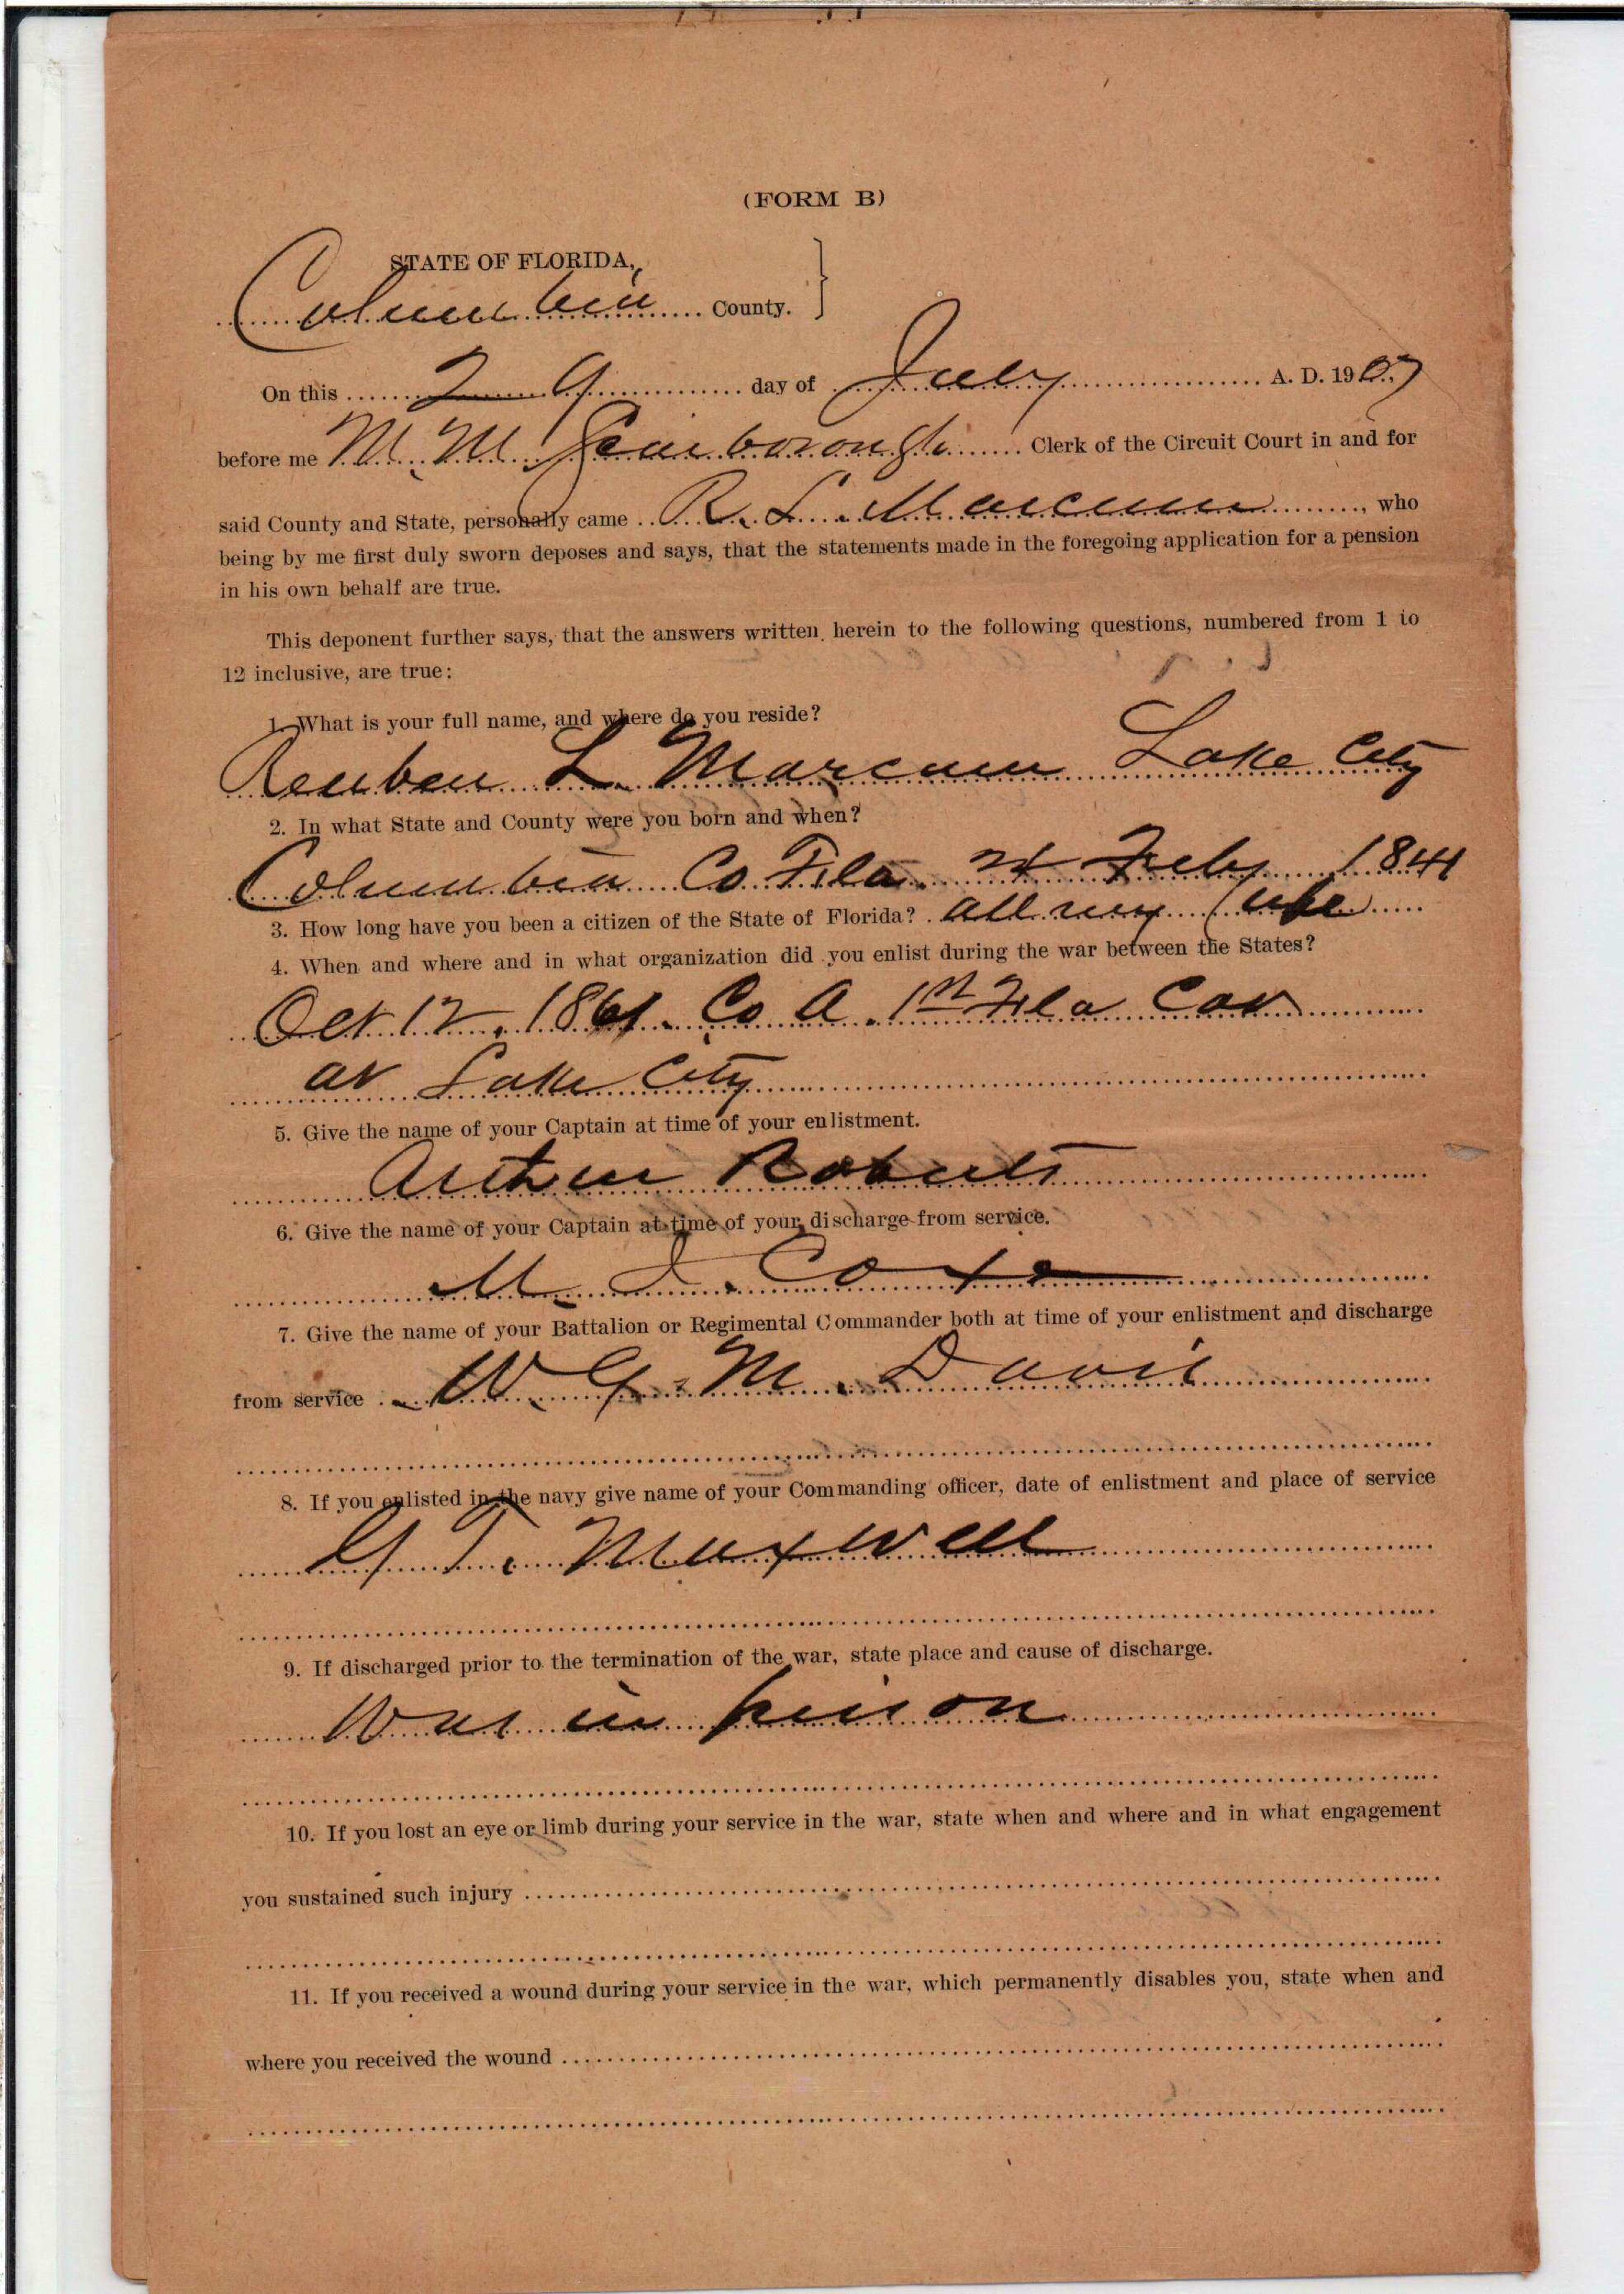 (FORM B)
STATE OF FLORIDA,
Columbia County.
On this 29 day of July A. D. 1907
before me M. M. Scarborough Clerk of the Circuit Court in and for
said County and State, personally came R. L. Marcum, who
being by me first duly sworn deposes and says, that the statements made in the foregoing application for a pension
in his own behalf are true.
This deponent further says, that the answers written herein to the following questions, numbered from 1 to
12 inclusive, are true:
1. What is your full name, and where do you reside?
Reuben L. Marcum Lake City
2. In what State and County were you born and when?
Columbia Co Fla. Feby 1841
3. How long have you been a citizen of the State of Florida? all my life
4. When and where and in what organization did you enlist during the war between the States?
Oct 12, 1861. Co A. 1st Fla Cav
at Lake City
5. Give the name of your Captain at time of your enlistment.
Arthur Roberts
6. Give the name of your Captain at time of your discharge from service.
M. J. Cox
7. Give the name of your Battalion or Regimental Commander both at time of your enlistment and discharge
from service W. G. M. Davis
8. If you enlisted in the navy give name of your Commanding officer, date of enlistment and place of service
G. T. Maxwell
9. If discharged prior to the termination of the war, state place and cause of discharge.
Was in prison
10. If you lost an eye or limb during your service in the war, state when and where and in what engagement
you sustained such injury
11. If you received a wound during your service in the war, which permanently disables you, state when and
where you received the wound